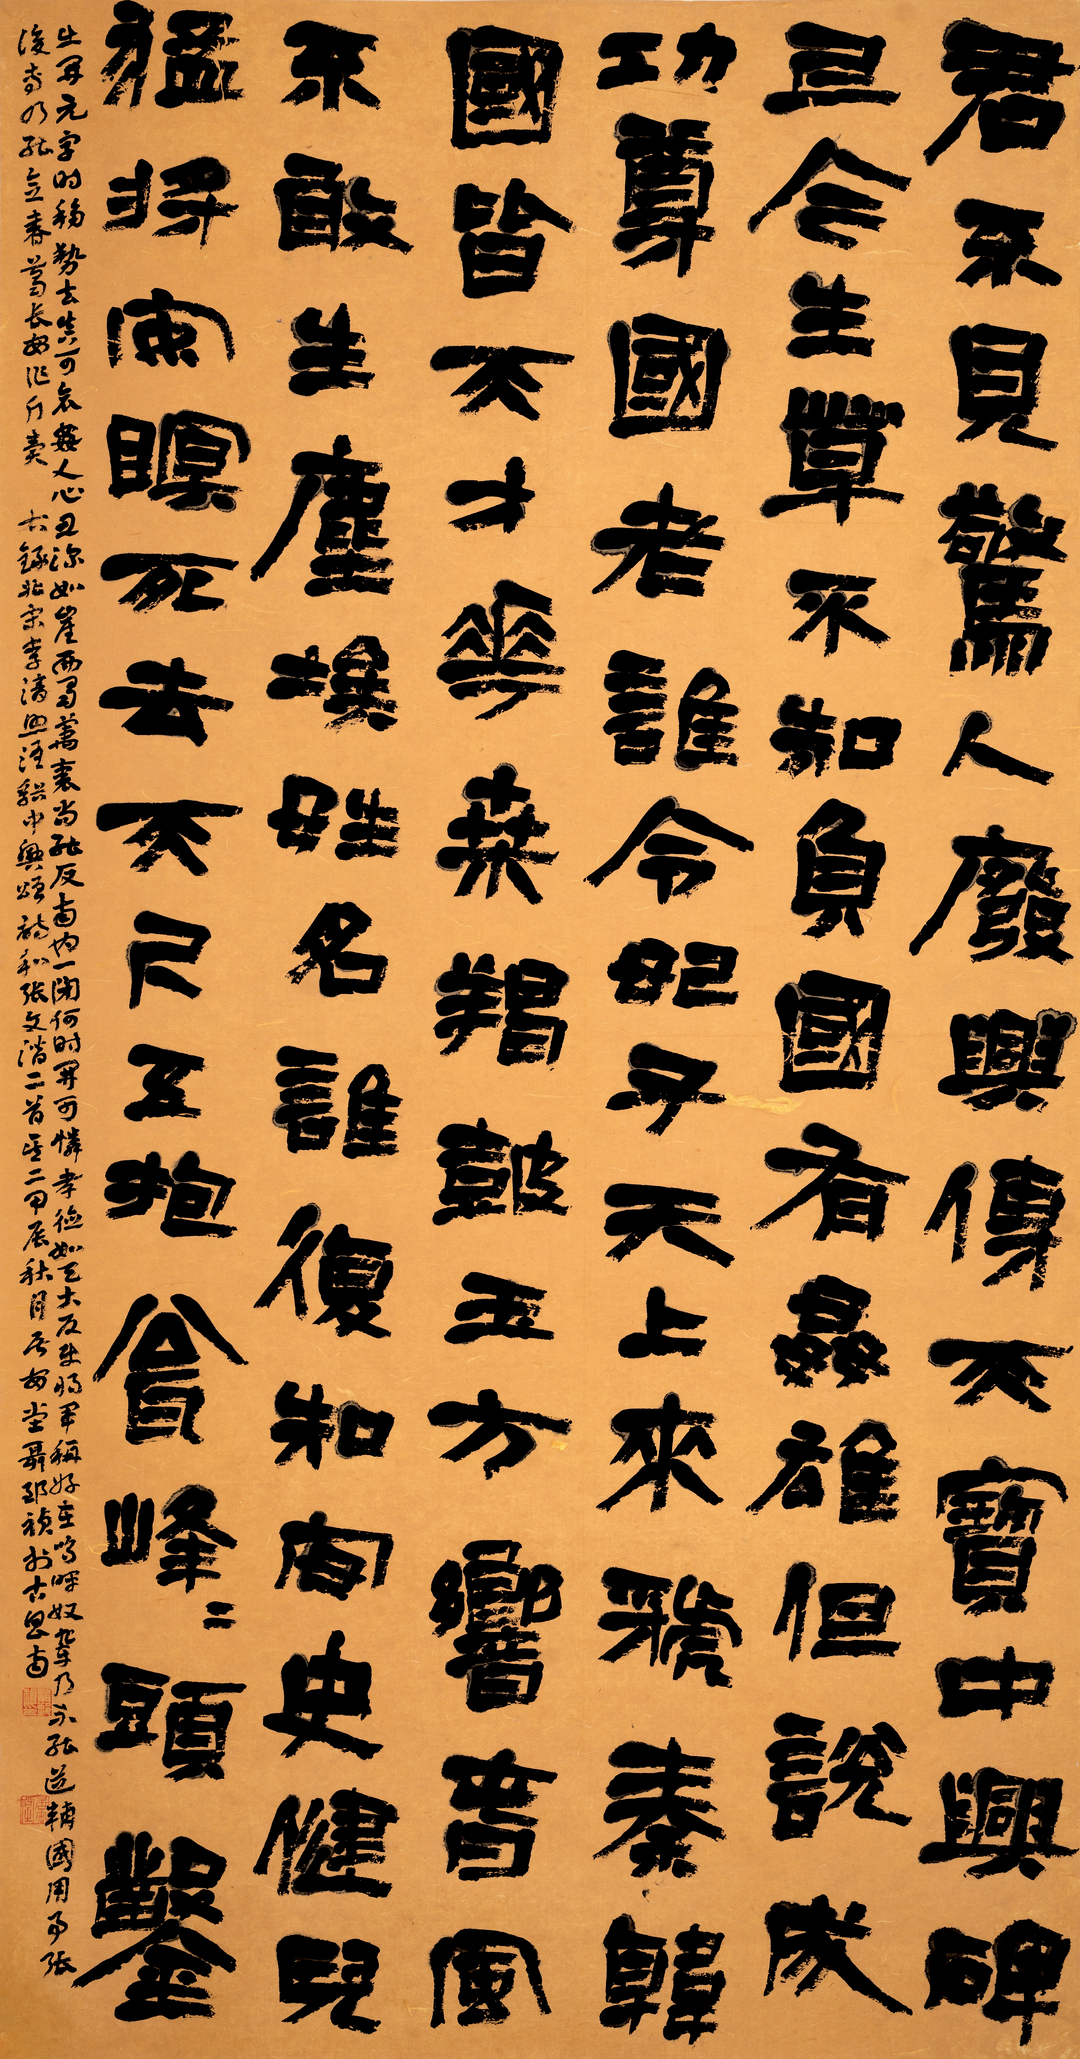 君不見驚人廢興傳天寶中興碑
亘今生草不知負國有姦雄但說成
功尊國老誰令妃子天上來虢秦韓
國皆天才華桑羯鼓玉方響春風
不敢生塵埃姓名誰復知安史健兒
猛將安瞑死去天尺五抱瓮峰〻頭鑿
出開元字時移勢去真可哀姦人心丑深如崖西蜀萬里尚能反南內一閉何時開可憐孝德如天大反使將軍稱好在嗚呼奴輩乃不能道輔國用事張
後專乃能念春薺長安作斤賣 右錄北宋李清照浯谿中興頌詩和張文潛二首其二甲辰秋月居安堂聶郅禎於古邑南